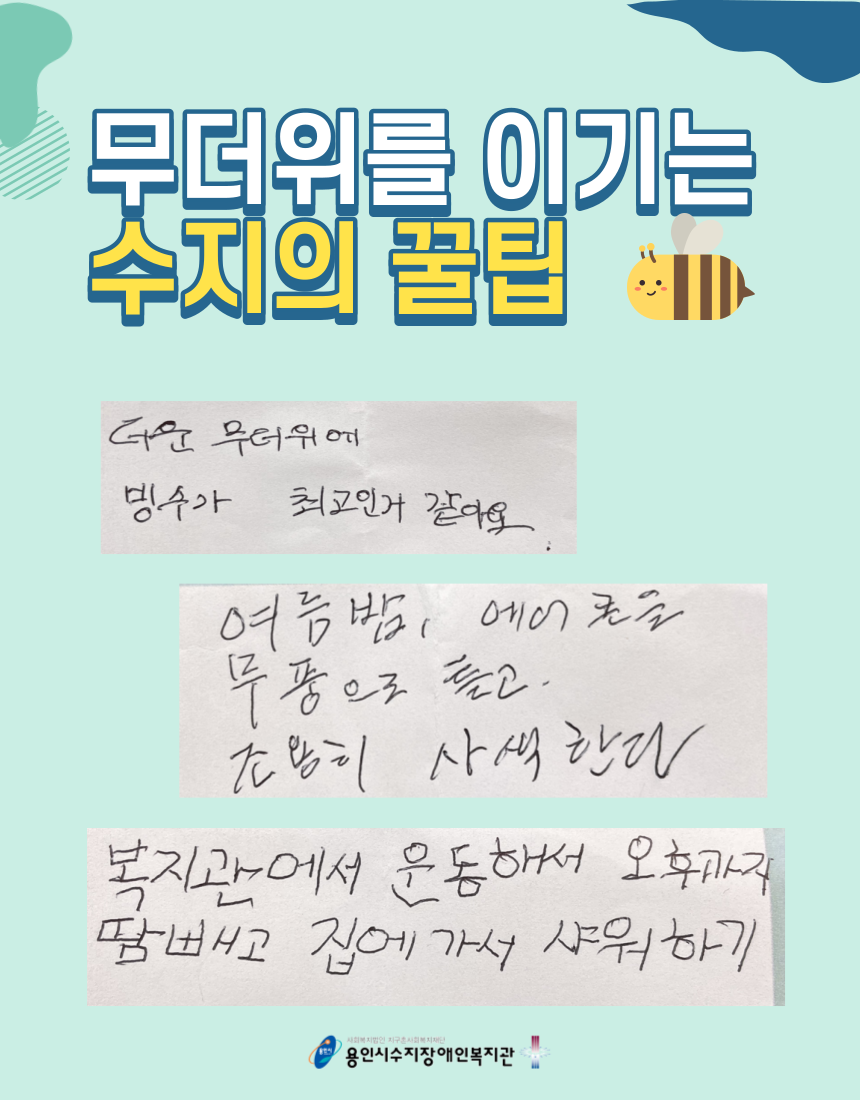 무더위를 이기는
수지의 꿀팁
더운 무더위에
빙수가 최고인거 같아요.
여름밤, 에어콘을
무풍으로 틀고.
조용히 사색한다
복지관에서 운동해서 오후까지
땀빼고 집에가서 샤워하기
사회복지법인 지구촌사회복지재단
용인시
용인시수지장애인복지관